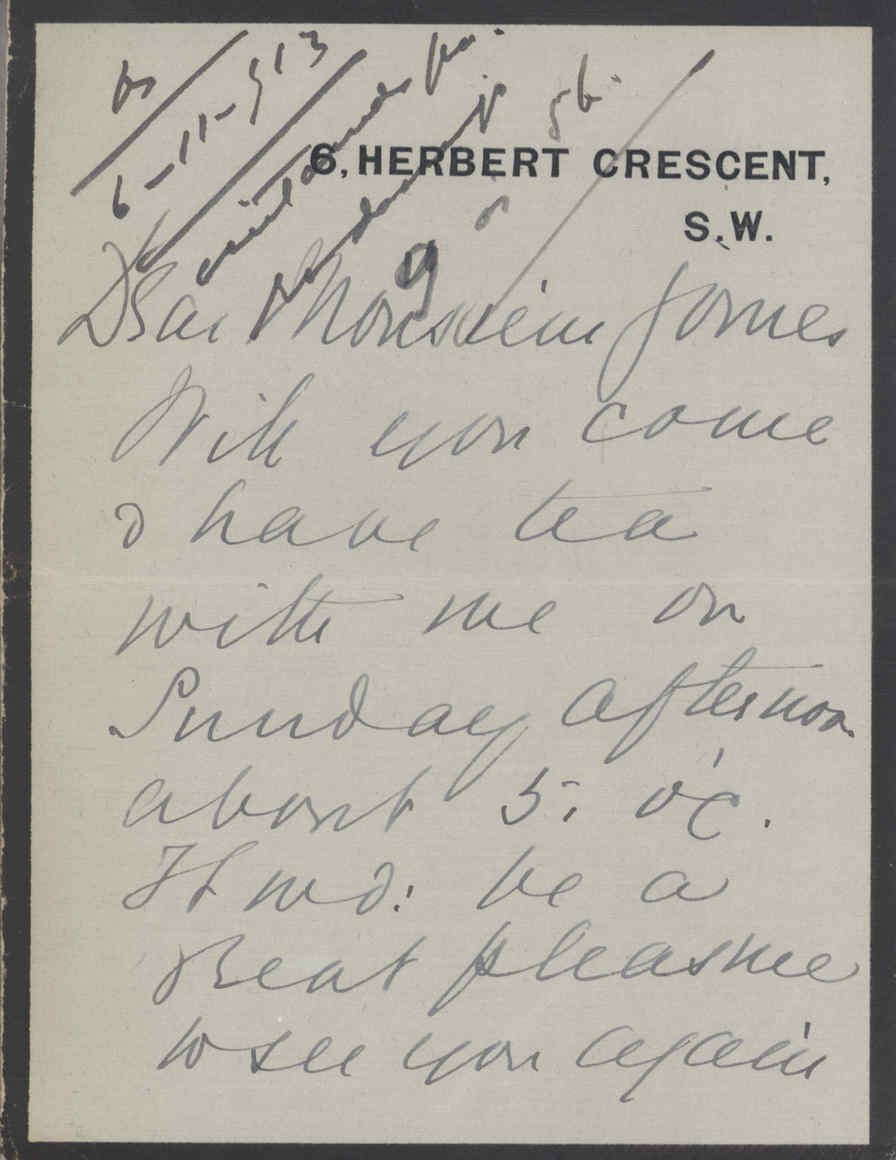 6-11-913
6, HERBERT CRESCENT,
S.W.
Dear Monsieur Gomes
Will you come
& have tea
with me on
Sunday afternoon
about 5. o'c.
It wd: be a
great pleasure
to see you again